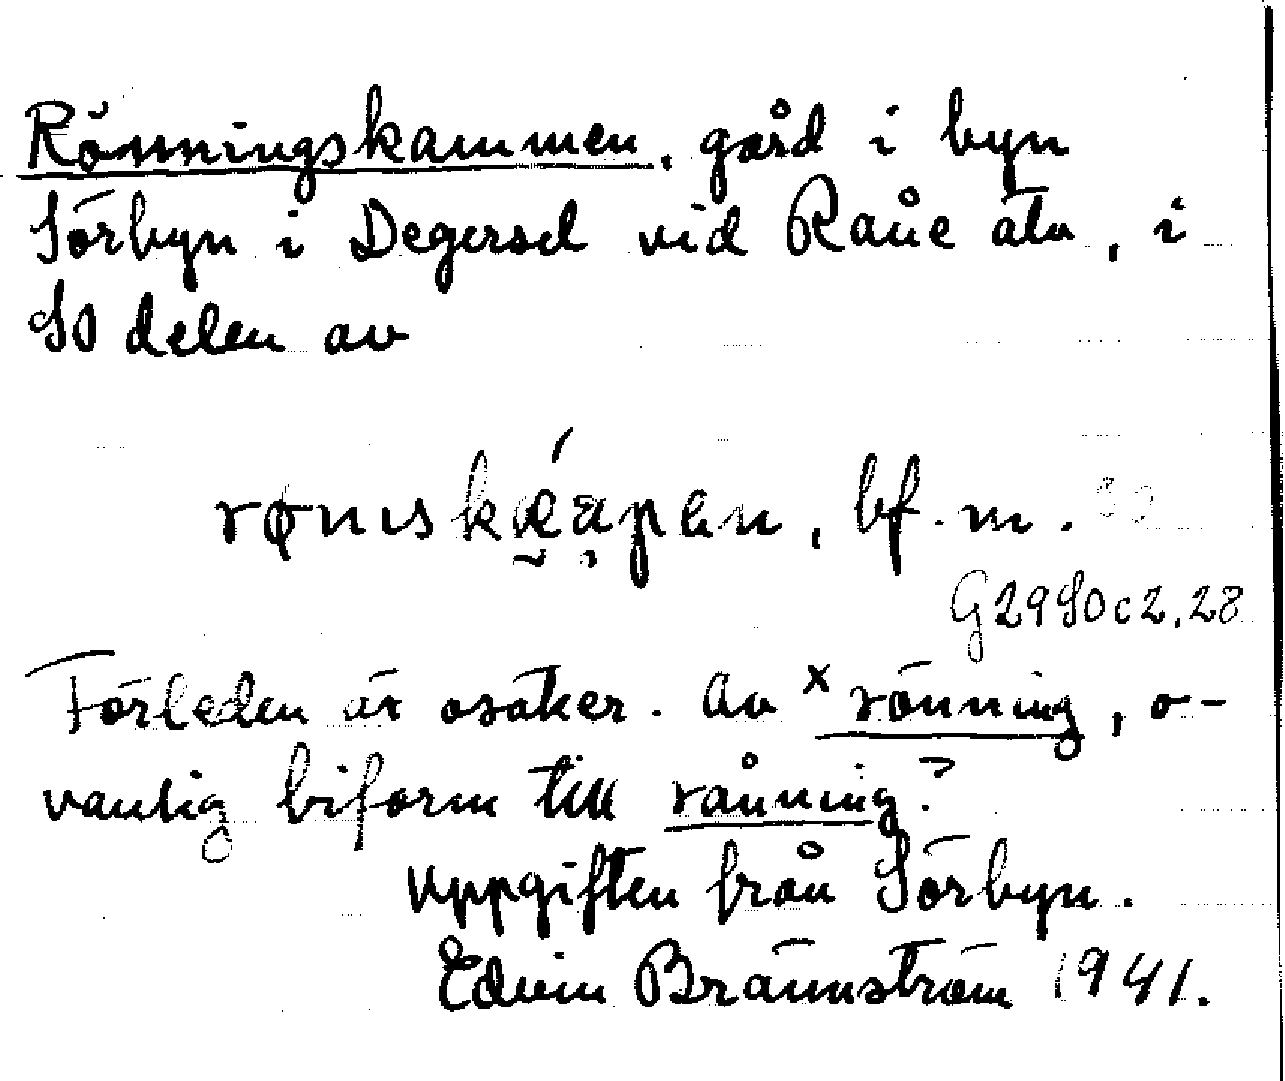 Rönningskammen, gård i byn
Sörbyn i Degersel vid Råne älv, i
SO delen av
bf. m.
G 29 SO c 2, 28
Förleden är osäker. Av x rönning, o-
vanlig biform till rånning?
Uppgiften från Sörbyn.
Edvin Brännström 1941.